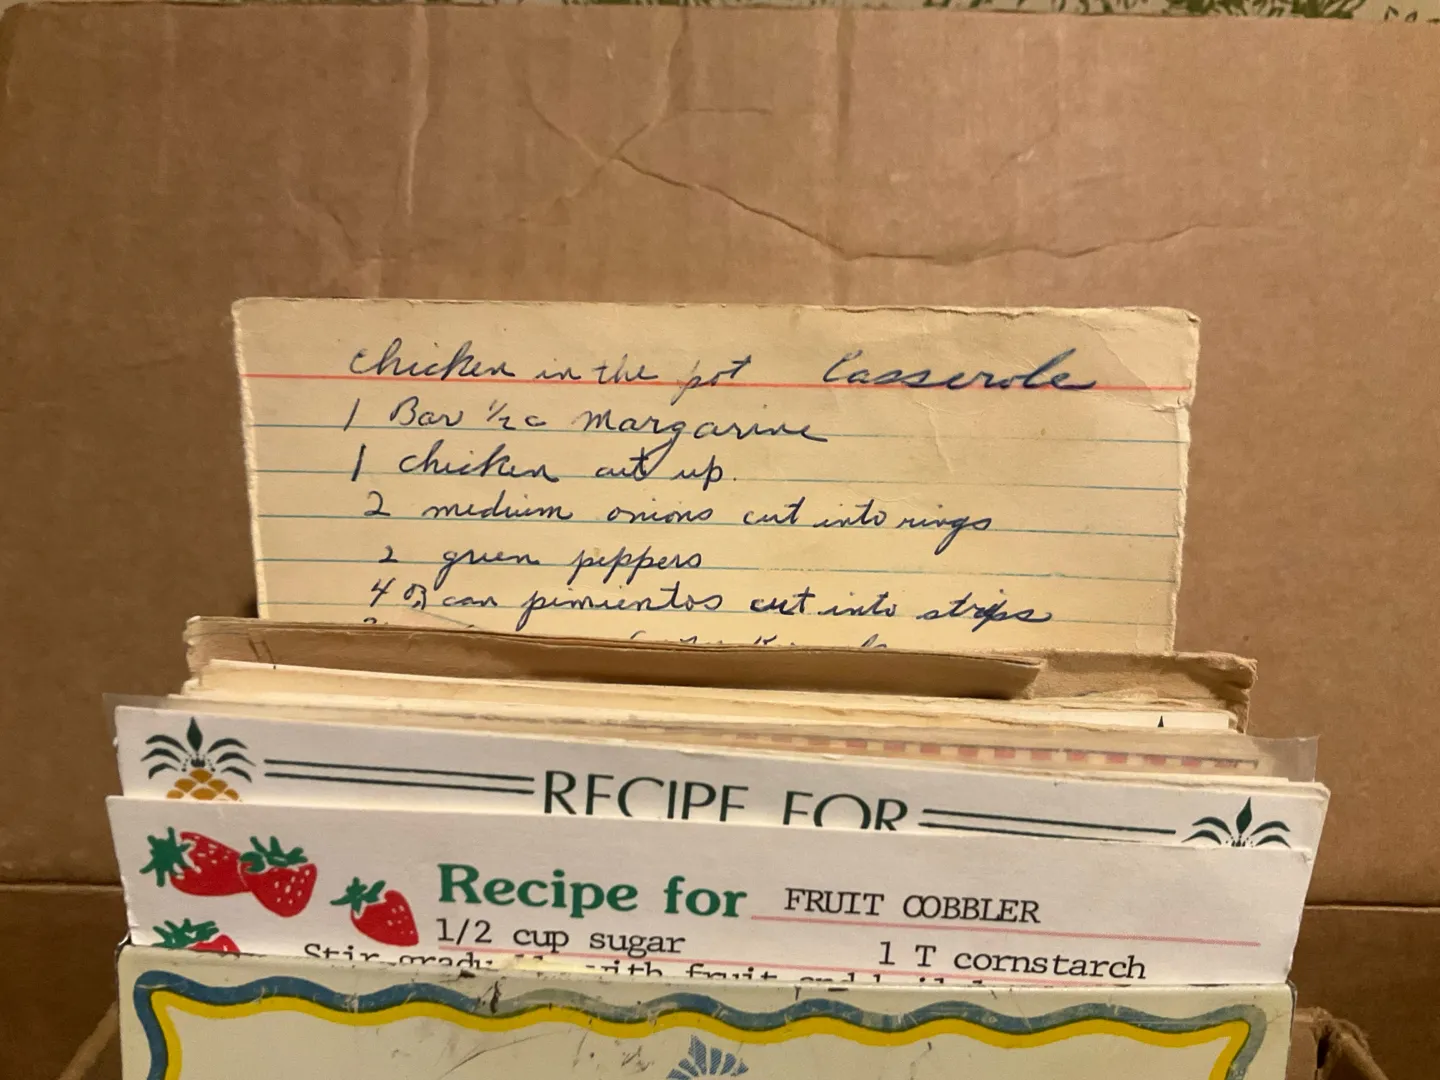 Chicken in the pot Casserole
1 Bar 1/2 c Margarine
1 chicken cut up.
2 medium onions cut into rings
2 green peppers
4 oz can pimientos cut into strips
RECIPE FOR
Recipe for FRUIT COBBLER
1/2 cup sugar 1 T cornstarch
Stir gradually with fruit and